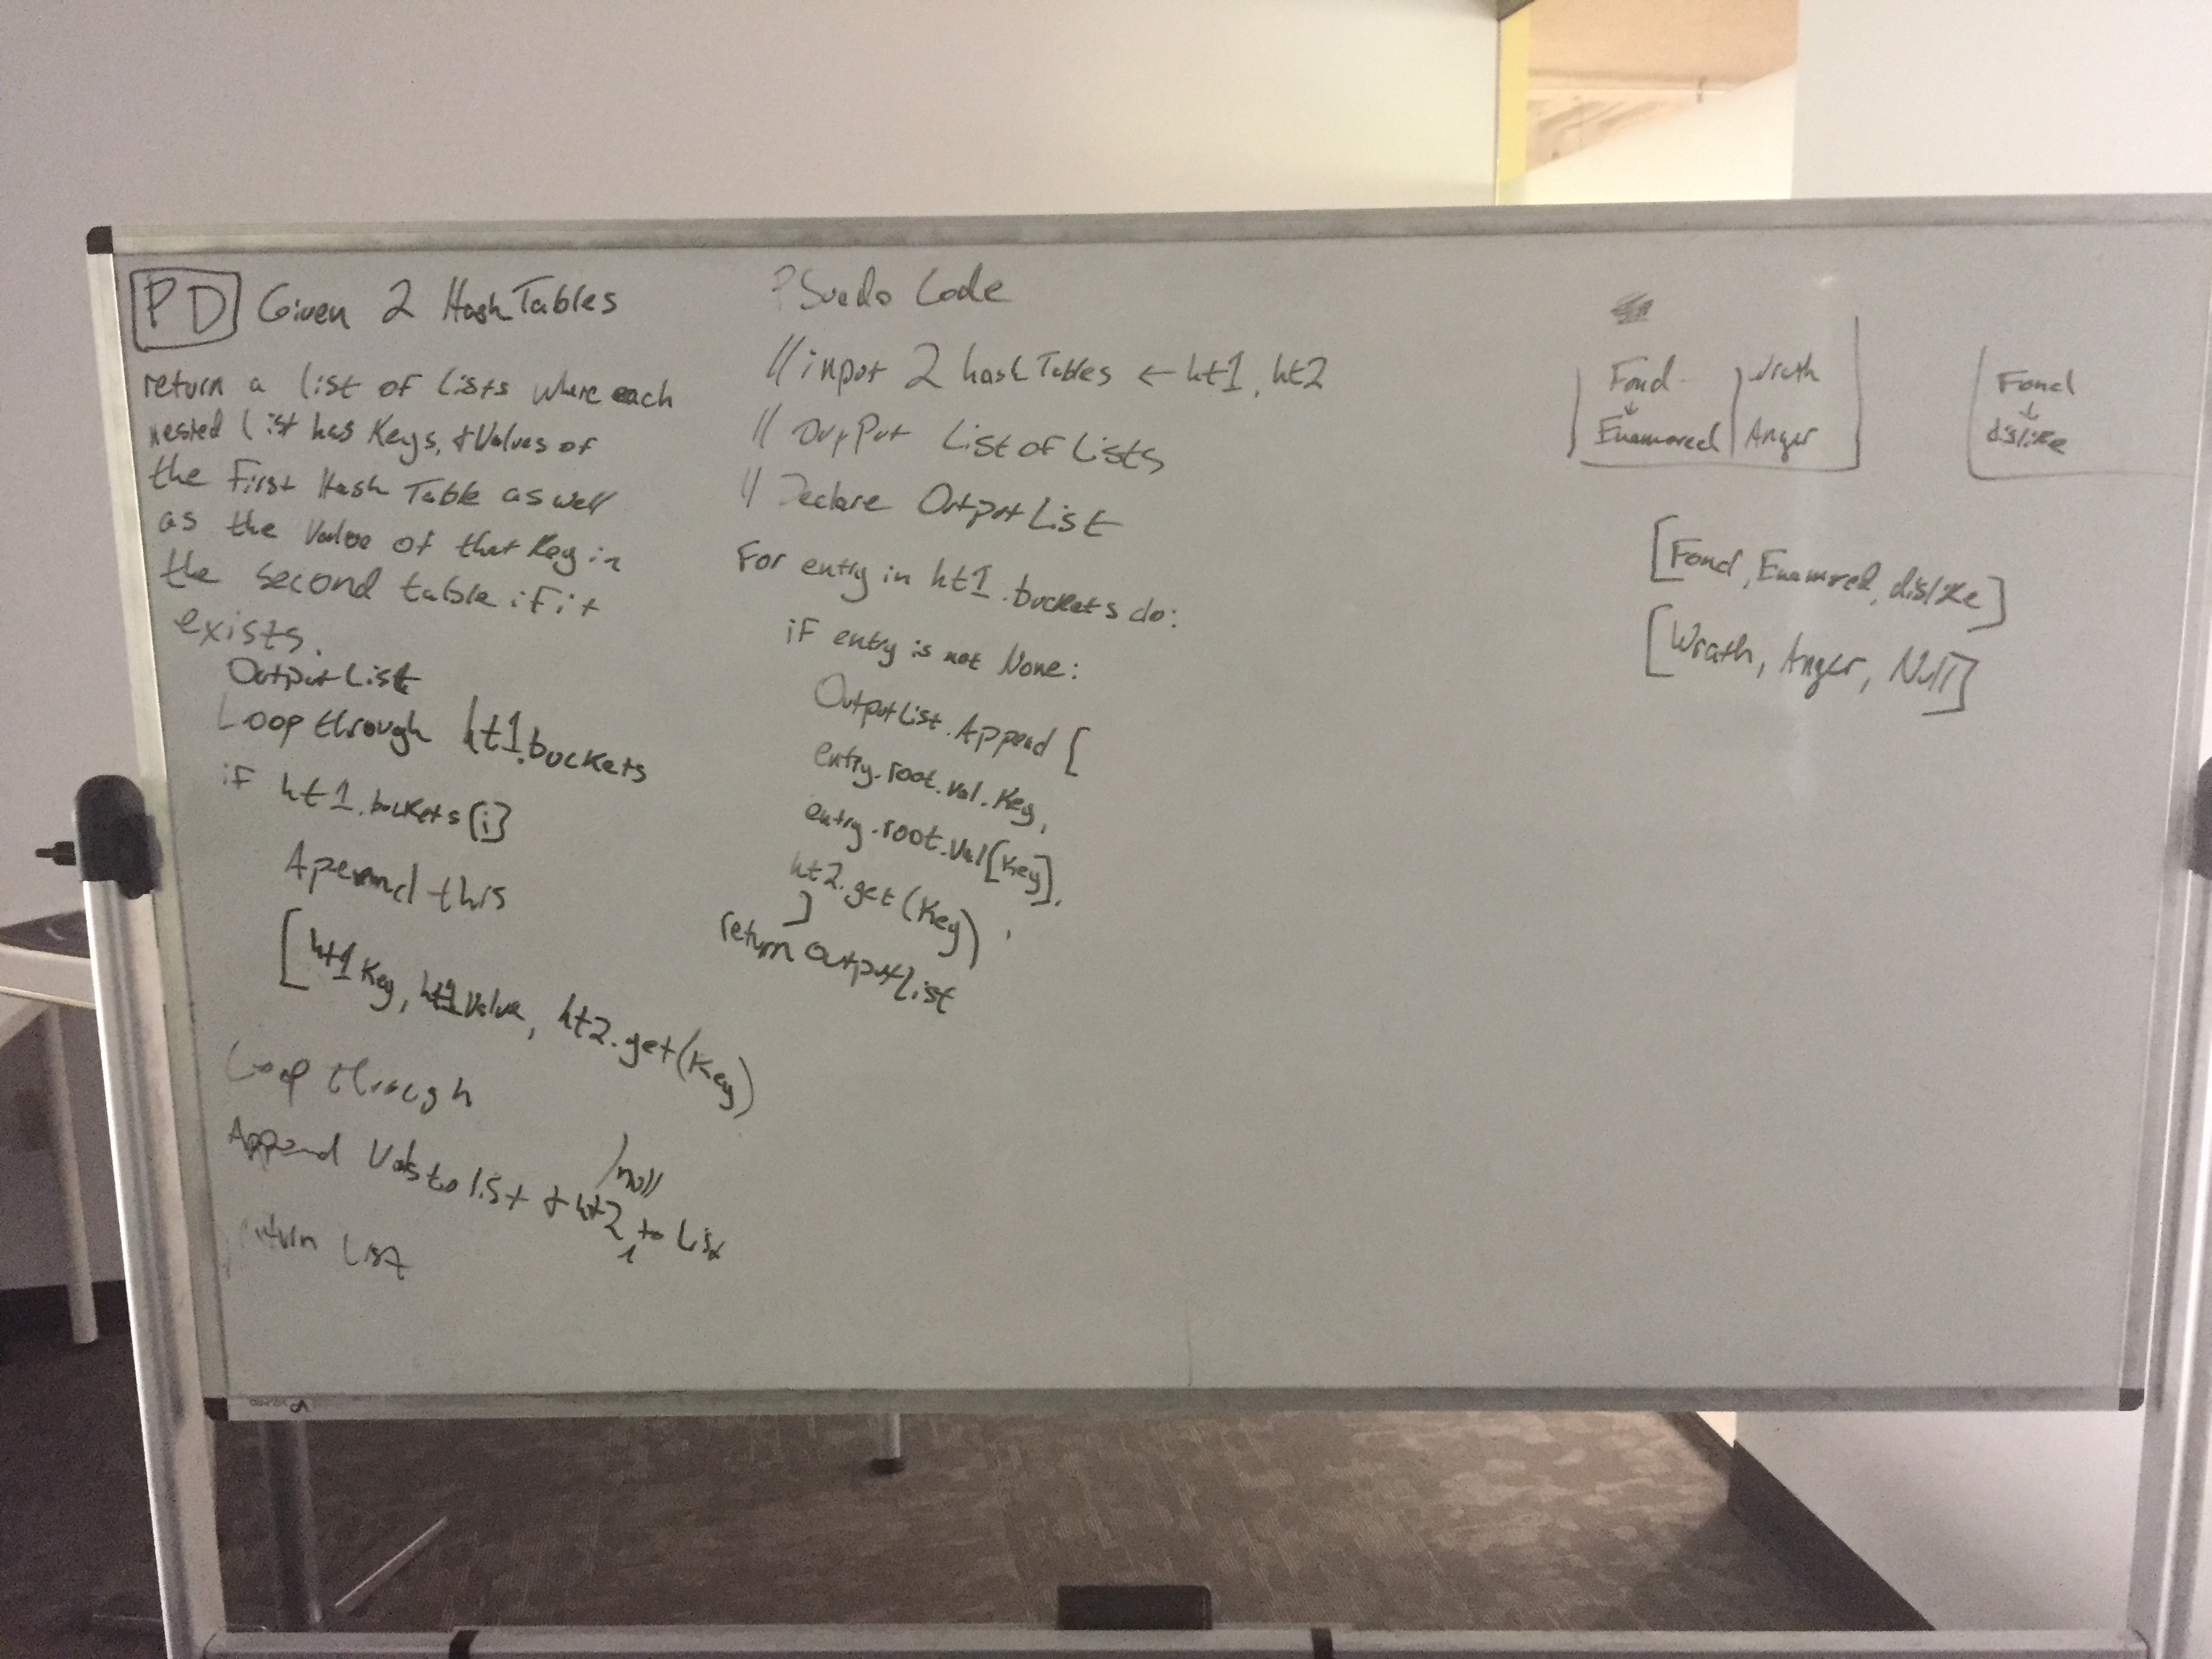 PD Given 2 Hash Tables
return a list of lists where each
nested list has Keys, & Values of
the First Hash Table as well
as the Value of that Key in
the second table if it
exists.
OutputList
Loop through ht1.buckets
if ht1.buckets[i]
Apennd this
[ht1 Key, ht1 Value, ht2.get(Key)
Loop through
Append Vals to list & ht2 /null to List
return List
PSuedo Code
// input 2 hash Tables ← ht1, ht2
// OutPut List of Lists
// Declare OutputList
For entry in ht1.buckets do:
if entry is not None:
OutputList.Append [
entry.root.val.Key,
entry.root.val[Key],
ht2.get(Key)
]
return OutputList
Fond Wrath
↓
Enamored Anger
Fond
↓
dislike
[Fond, Enamored, dislike]
[Wrath, Anger, Null]